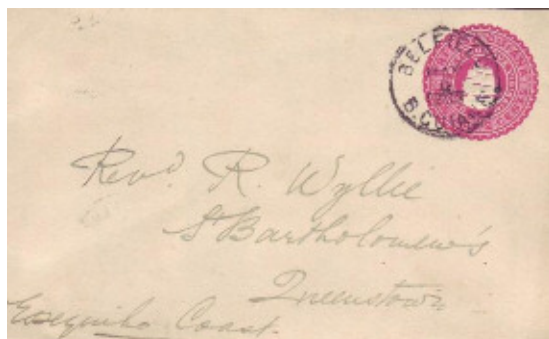 BELFIELD
B. GUIANA
Revd. R. Wyllie
St Bartholomew's
Queenstown
Essequibo Coast.